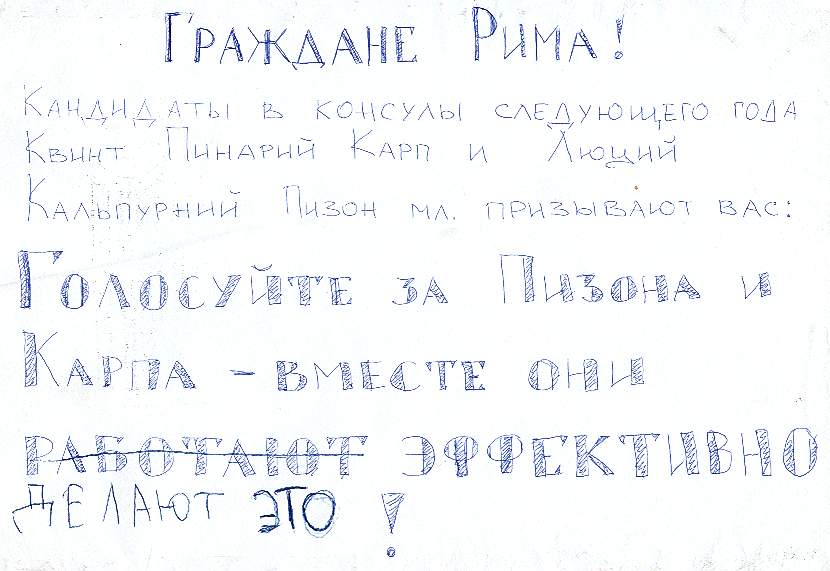 Граждане Рима!
Кандидаты в консулы следующего года
Квинт Пинарий Карп и Люций
Кальпурний Пизон мл. призывают вас:
Голосуйте за Пизона и
Карпа - вместе они
работают эффективно
делают это!